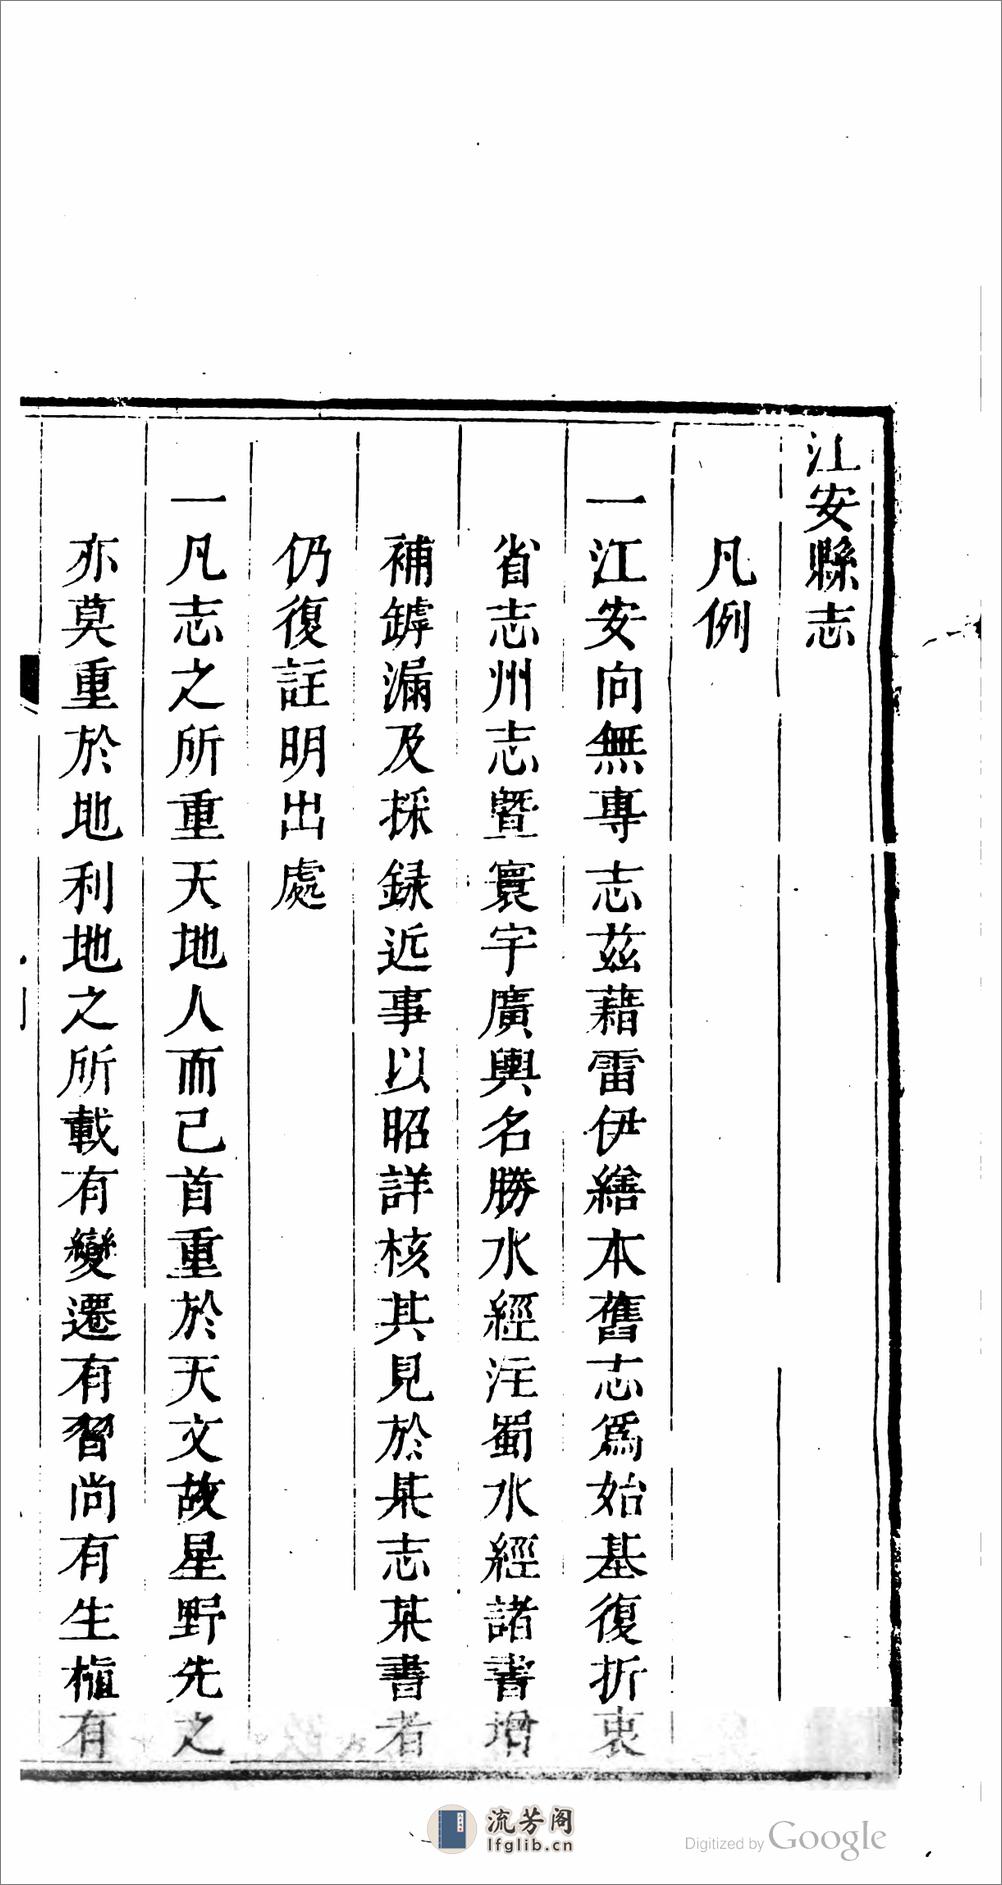 江安縣志
凡例
一江安向無專志茲藉雷伊繕本舊志爲始基復折衷
省志州志曁寰宇廣輿名勝水經注蜀水經諸書增
補罅漏及採録近事以昭詳核其見於某志某書者
仍復註明出處
一凡志之所重天地人而已首重於天文故星野先之
亦莫重於地利地之所載有變遷有習尚有生植有
流芳阁
lfglib.cn
Digitized by Google